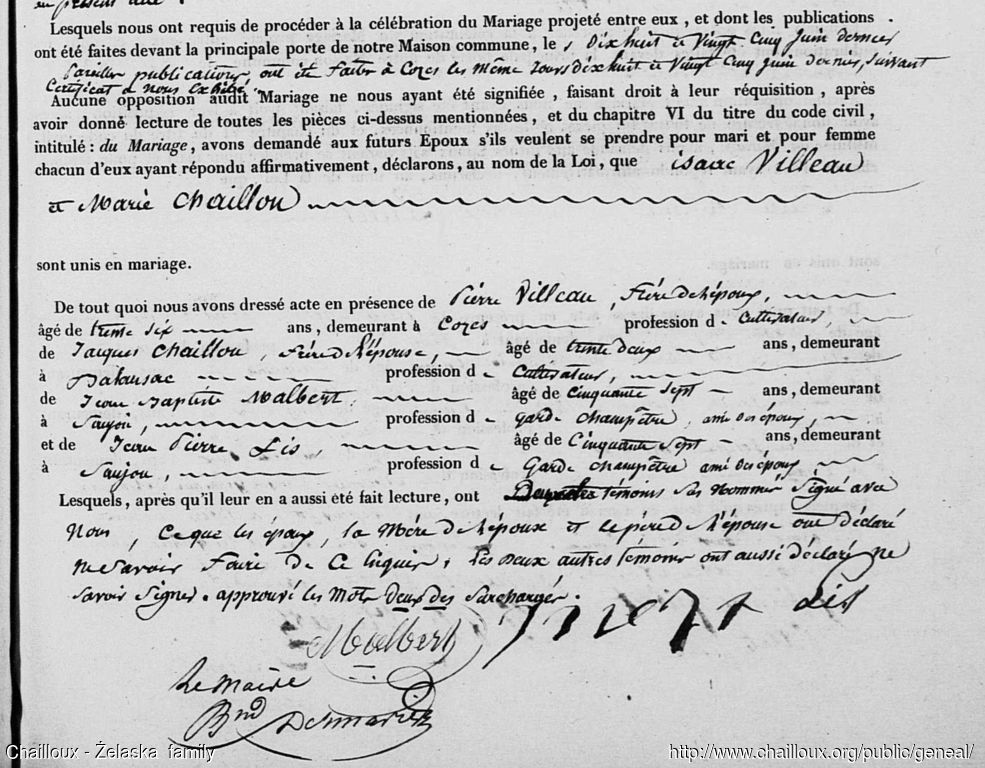 en présent
Lesquels nous ont requis de procéder à la célébration du Mariage projeté entre eux, et dont les publications
ont été faites devant la principale porte de notre Maison commune, le s Dix huit et Vingt Cinq Juin dernier
Pareilles publications ont été faites à Cozes les même Jours dix huit et Vingt Cinq Juin dernier, suivant
Certificat à nous Exhibé.
Aucune opposition audit Mariage ne nous ayant été signifiée, faisant droit à leur réquisition, après
avoir donné lecture de toutes les pièces ci-dessus mentionnées, et du chapitre VI du titre du code civil,
intitulé : du Mariage, avons demandé aux futurs Epoux s'ils veulent se prendre pour mari et pour femme
chacun d'eux ayant répondu affirmativement, déclarons, au nom de la Loi, que isaac Villeau
et Marie Chaillou
sont unis en mariage.
De tout quoi nous avons dressé acte en présence de Pierre Villeau, frère de l'époux,
âgé de trente six ans, demeurant à Cozes profession d e Cultivateur,
de Jacques Chaillou, frère de l'épouse, âgé de trente deux ans, demeurant
à Balansac profession d e Cultivateur,
de Jean Baptiste Malbert âgé de Cinquante Sept ans, demeurant
à Saujon, profession d e garde champêtre, ami des époux,
et de Jean Pierre Lis âgé de Cinquante Sept ans, demeurant
à Saujon, profession d e Garde champêtre ami des époux
Lesquels, après qu'il leur en a aussi été fait lecture, ont témoins Sus Nommés Signé avec
Nous, Ce que les époux, la Mère de l'époux et le père de l'épouse ont déclaré
ne Savoir Faire de Ce Enquis, les Deux autres témoins ont aussi déclaré ne
Savoir Signer. approuvé les Mots deux des Surchargés.
Malbert Lis
Le Maire
Bnd
Chailloux - Żelaska family http://www.chailloux.org/public/geneal/